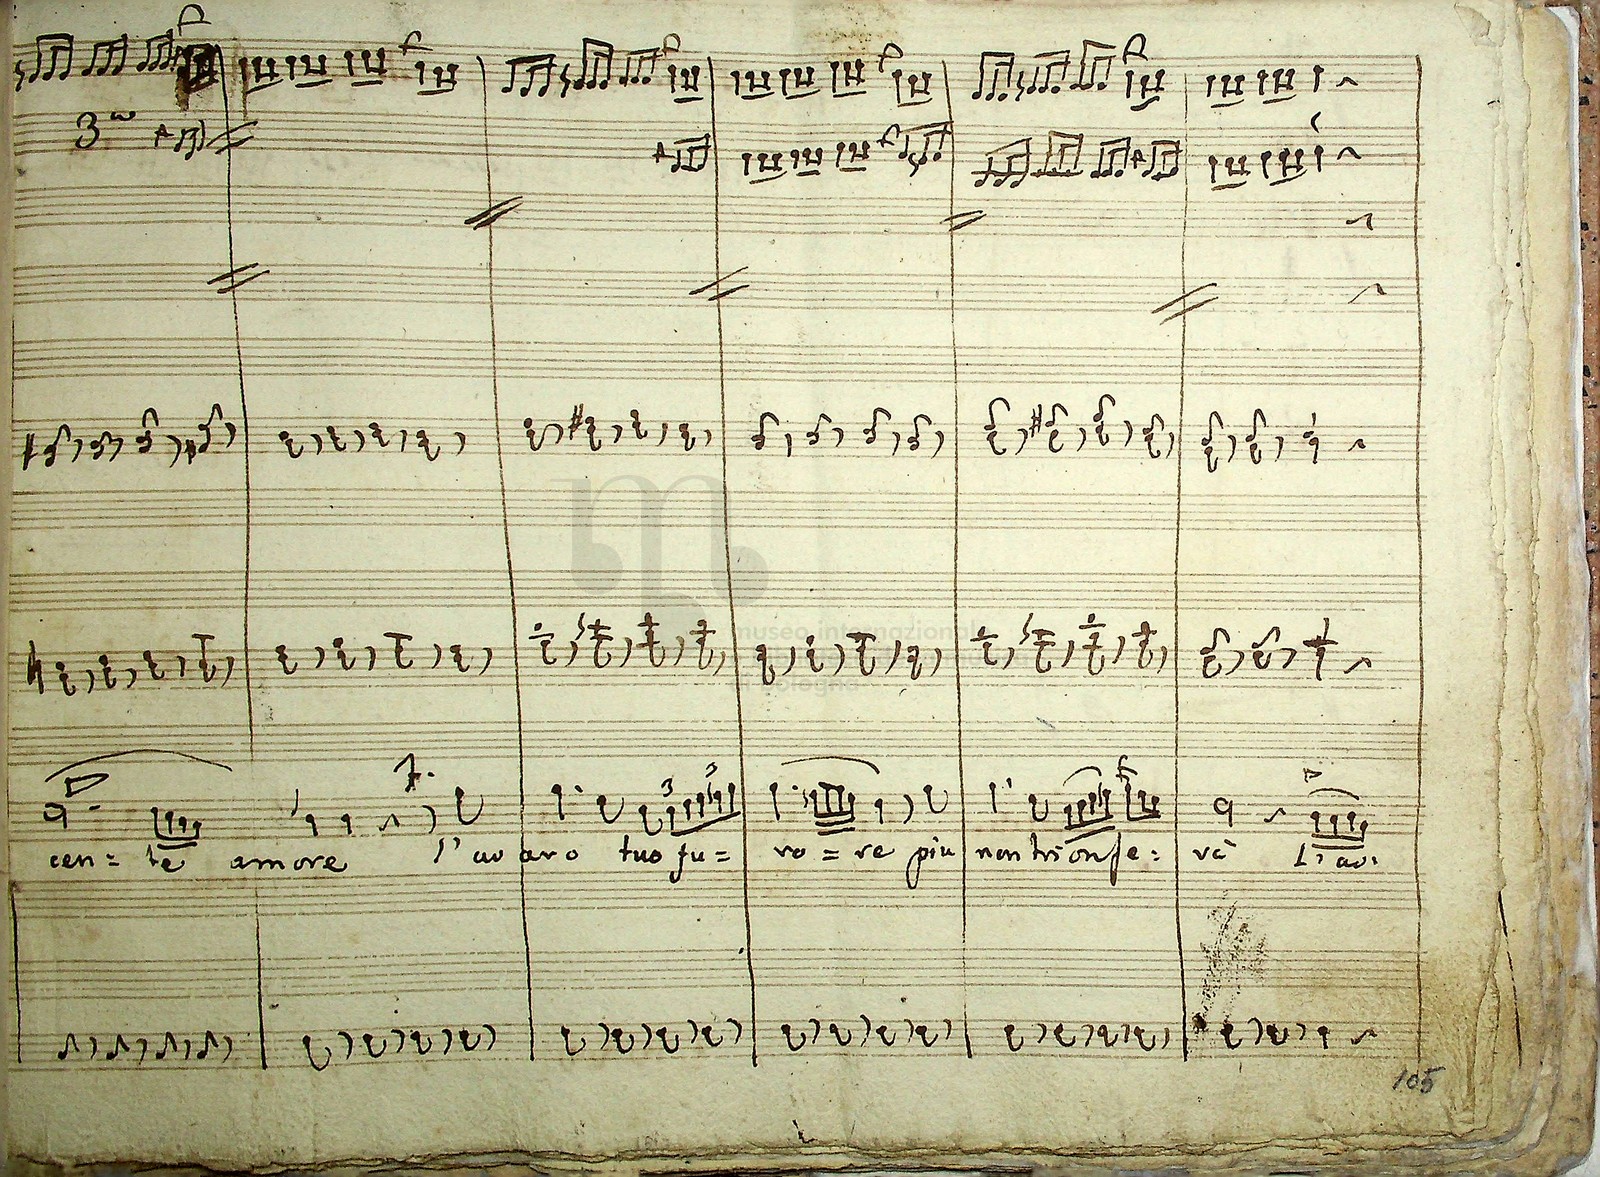 3ª
cen= te amore l'avaro tuo fu= ro=re più non trionfe= rà L'av:
museo internazionale
di bologna
105